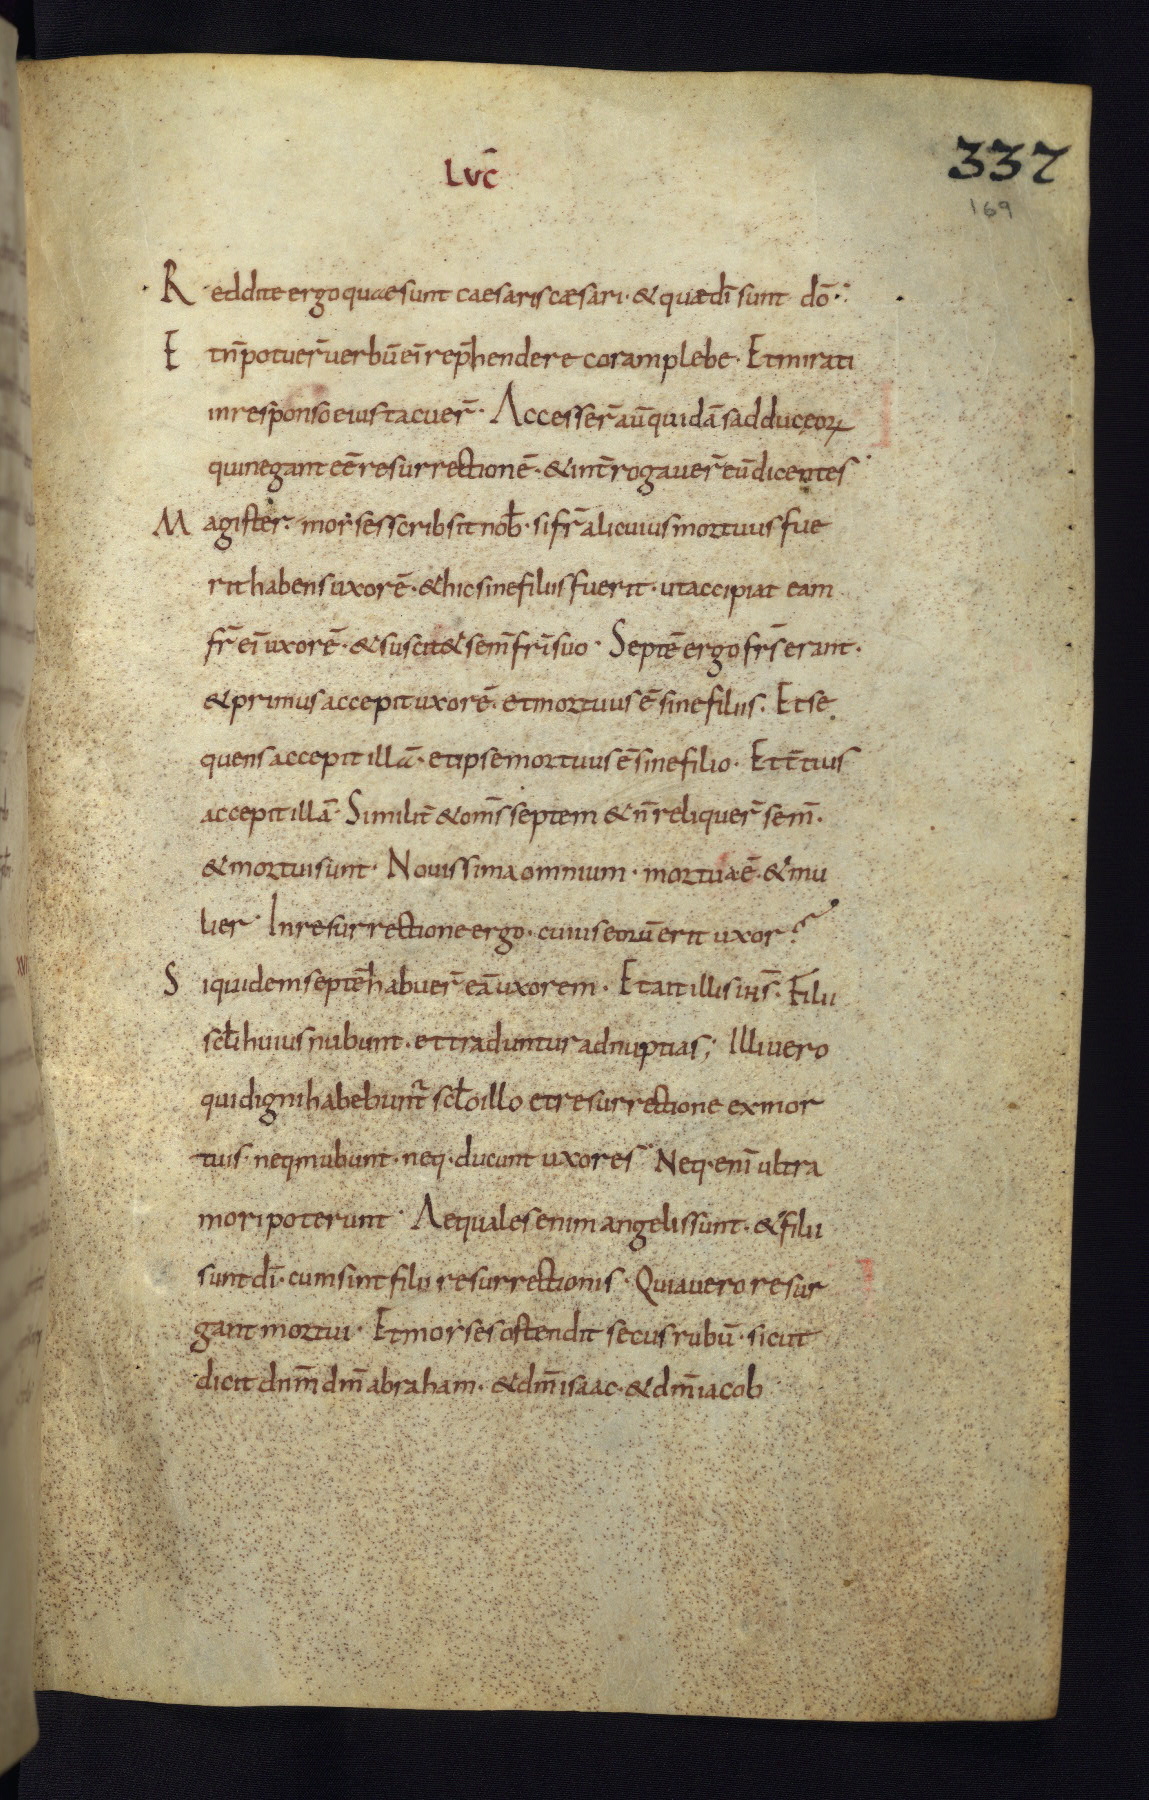 LVC̄
337
169
Reddite ergo quae sunt caesaris cæsari · & quæ dī sunt dō ·:
Et n̄ potuer̄ verbū eī rep̄hendere coram plebe · Et mirati
in responso eius tacuer̄ · Accesser̄ aū quidā sadduceoꝝ
qui negant eē resurrectionē · & int̄rogauer̄ eū dicentes
Magister · moẏses scribsit nob̄ · si fr̄ alicuius mortuus fue
rit habens uxorē · & hic sine filiis fuerit · ut accipiat eam
fr̄ eī uxorē · & suscit& sem̄ fr̄i suo · Septē ergo fr̄s erant ·
& primus accepit uxorē · et mortuus ē sine filiis · Et se
quens accepit illā · et ipse mortuus ē sine filio · Et t̄tius
accepit illā · Similit̄ & om̄s septem & n̄ reliquer̄ sem̄ ·
& mortui sunt · Nouissima omnium · mortua ē · & mu
lier · In resurrectione ergo · cuius eorū erit uxor ?
Siquidem septē habuer̄ eā uxorem · Et ait illis ih̄s · Filii
scl̄i huius nubunt · et traduntur ad nuptias ; Illi uero
qui digni habebunt̄ scl̄o illo et resurrectione ex mor
tuis · neq · nubunt · neq · ducunt uxores · Neq · enī ultra
mori poterunt · Aequales enim angelis sunt · & filii
sunt dī · cum sint filii resurrectionis · Quia uero resur
gant mortui · Et moẏses ostendit secus rubū · sicut
dicit dnm̄ dm̄ abraham · & dm̄ isaac · & dm̄ iacob